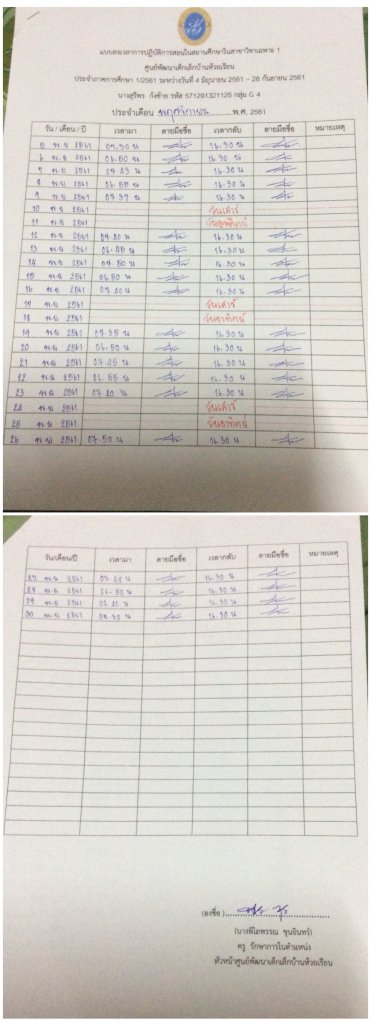 แบบลงเวลาการปฏิบัติการสอนในสถานศึกษาในสาขาวิชาเฉพาะ 1
ศูนย์พัฒนาเด็กเล็กบ้านห้วยเรียน
ประจำภาคการศึกษา 1/2561 ระหว่างวันที่ 4 มิถุนายน 2561 – 28 กันยายน 2561
นางสุรีพร กังซ้าย รหัส 571291321125 กลุ่ม G 4
ประจำเดือน พฤศจิกายน พ.ศ. 2561
วัน / เดือน / ปี เวลามา ลายมือชื่อ เวลากลับ ลายมือชื่อ หมายเหตุ
5 พ.ย 2561 07.30 น 16.30 น
6 พ.ย 2561 06.50 น 16.30 น
7 พ.ย 2561 07.23 น 16.30 น
8 พ.ย 2561 06.55 น 16.30 น
9 พ.ย 2561 07.37 น 16.30 น
10 พ.ย 2561 วันเสาร์
11 พ.ย 2561 วันอาทิตย์
12 พ.ย 2561 07.40 น 16.30 น
13 พ.ย 2561 06.45 น 16.30 น
14 พ.ย 2561 07.50 น 16.30 น
15 พ.ย 2561 06.50 น 16.30 น
16 พ.ย 2561 07.40 น 16.30 น
17 พ.ย 2561 วันเสาร์
18 พ.ย 2561 วันอาทิตย์
19 พ.ย 2561 07.35 น 16.30 น
20 พ.ย 2561 06.50 น 16.30 น
21 พ.ย 2561 07.45 น 16.30 น
22 พ.ย 2561 06.55 น 16.30 น
23 พ.ย 2561 07.40 น 16.30 น
24 พ.ย 2561 วันเสาร์
25 พ.ย 2561 วันอาทิตย์
26 พ.ย 2561 07.50 น 16.30 น
วัน/เดือน/ปี เวลามา ลายมือชื่อ เวลากลับ ลายมือชื่อ หมายเหตุ
27 พ.ย 2561 07.40 น 16.30 น
28 พ.ย 2561 06.50 น 16.30 น
29 พ.ย 2561 07.40 น 16.30 น
30 พ.ย 2561 16.30 น
(ลงชื่อ)
(นางพิไลพรรณ ขุนอินทร์)
ครู รักษาการในตำแหน่ง
หัวหน้าศูนย์พัฒนาเด็กเล็กบ้านห้วยเรียน